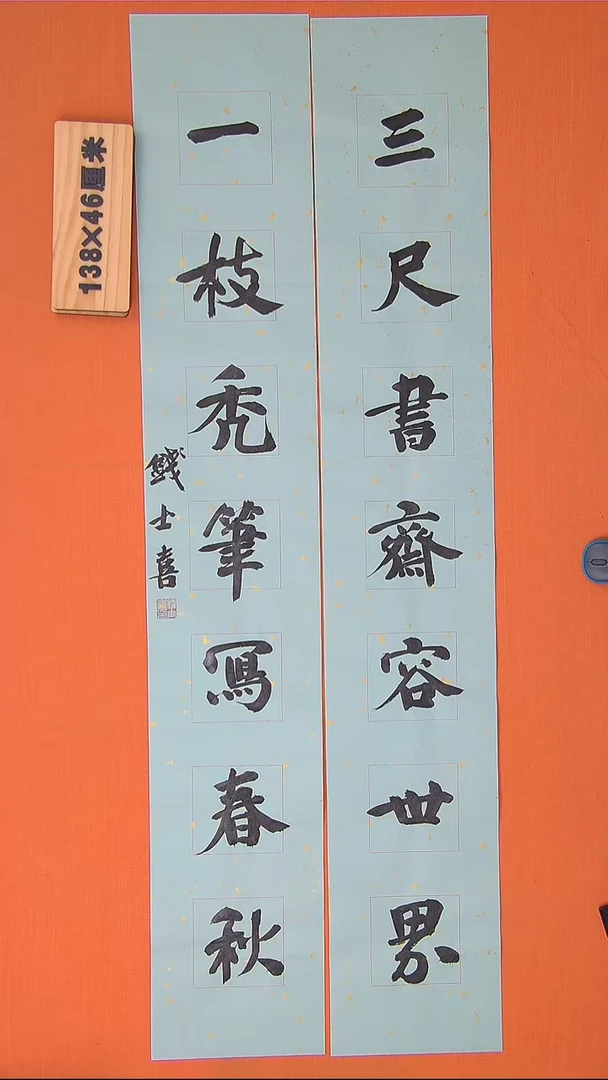 三尺書齋容世界
一枝秃筆寫春秋
錢士喜
138×46厘米